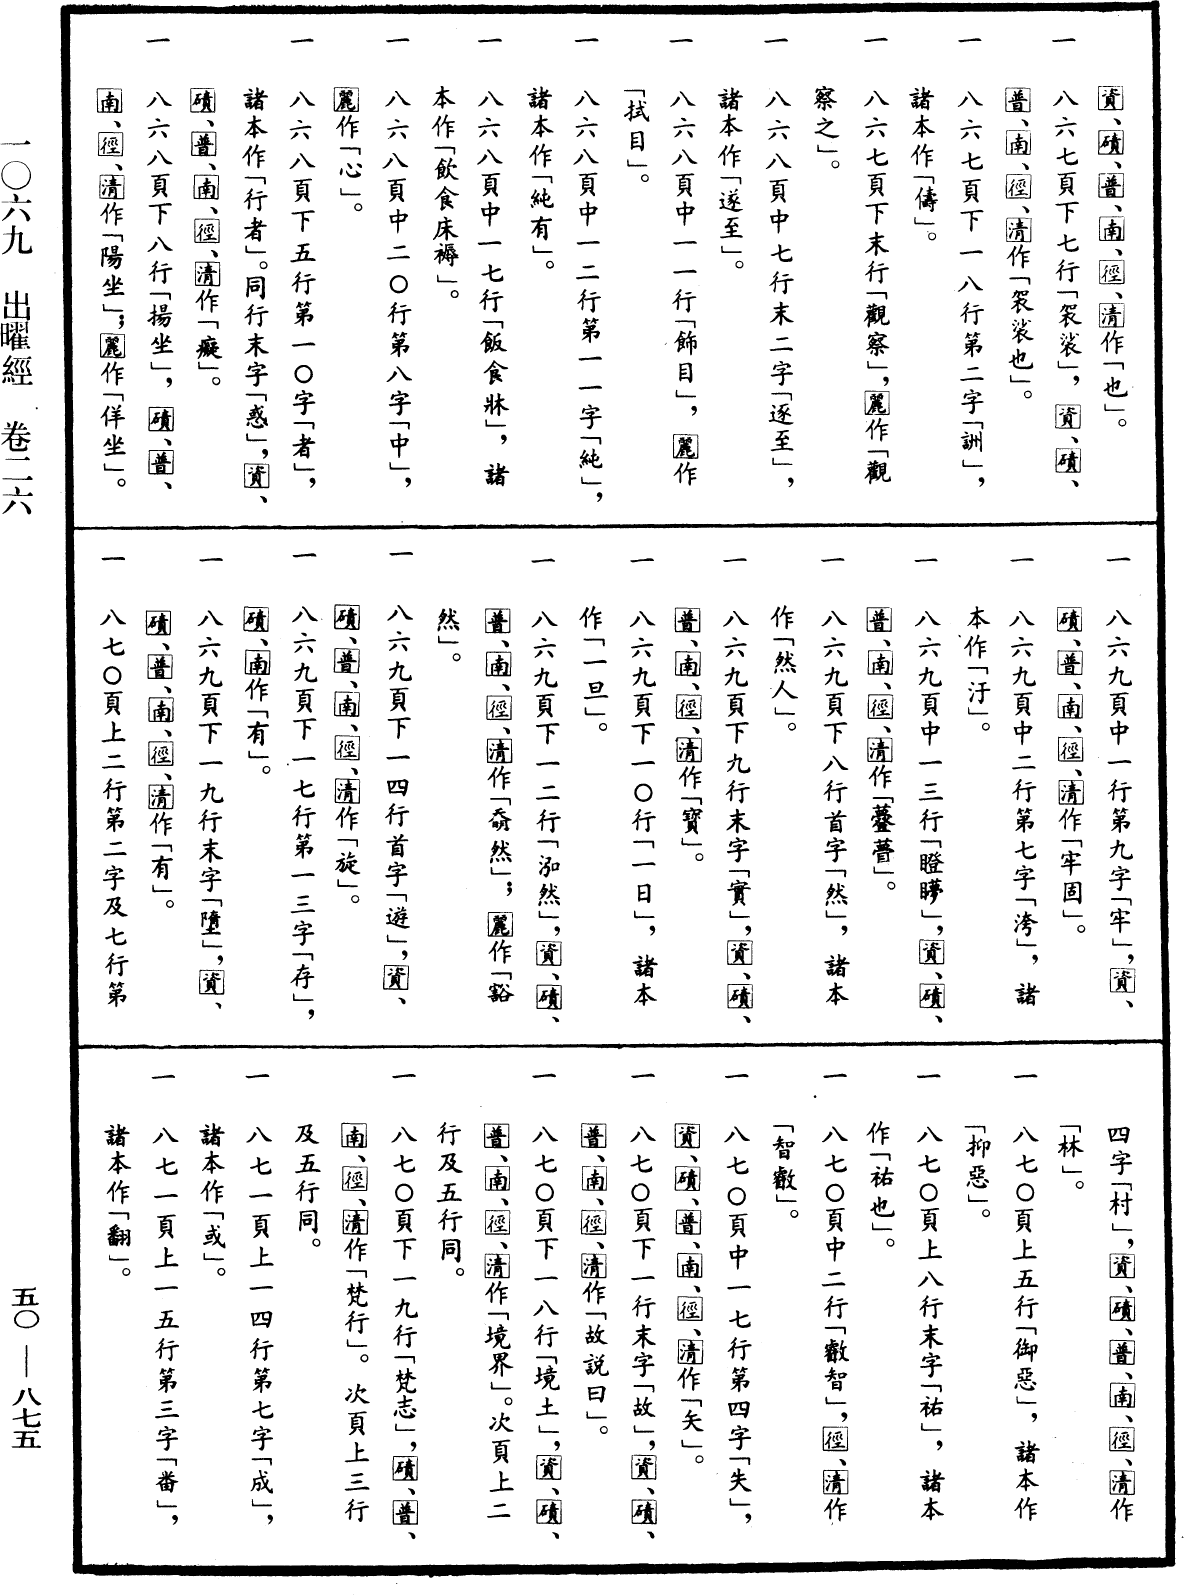 資、磧、普、南、徑、清作「也」。
一　八六七頁下七行「袈裟」，資、磧、
普、南、徑、清作「袈裟也」。
一　八六七頁下一八行第二字「詶」，
諸本作「儔」。
一　八六七頁下末行「觀察」，麗作「觀
察之」。
一　八六八頁中七行末二字「逐至」，
諸本作「遂至」。
一　八六八頁中一一行「飾目」，麗作
「拭目」。
一　八六八頁中一二行第一一字「純」，
諸本作「純有」。
一　八六八頁中一七行「飯食牀」，諸
本作「飲食床褥」。
一　八六八頁中二〇行第八字「中」，
麗作「心」。
一　八六八頁下五行第一〇字「者」，
諸本作「行者」。同行末字「惑」，資、
磧、普、南、徑、清作「癡」。
一　八六八頁下八行「揚坐」，磧、普、
南、徑、清作「陽坐」；麗作「佯坐」。
一　八六九頁中一行第九字「牢」，資、
磧、普、南、徑、清作「牢固」。
一　八六九頁中二行第七字「洿」，諸
本作「汙」。
一　八六九頁中一三行「瞪矒」，資、磧、
普、南、徑、清作「薹瞢」。
一　八六九頁下八行首字「然」，諸本
作「然人」。
一　八六九頁下九行末字「實」，資、磧、
普、南、徑、清作「寶」。
一　八六九頁下一〇行「一日」，諸本
作「一旦」。
一　八六九頁下一二行「泓然」，資、磧、
普、南、徑、清作「奫然」；麗作「豁
然」。
一　八六九頁下一四行首字「遊」，資、
磧、普、南、徑、清作「旋」。
一　八六九頁下一七行第一三字「存」，
磧、南作「有」。
一　八六九頁下一九行末字「墮」，資、
磧、普、南、徑、清作「有」。
一　八七〇頁上二行第二字及七行第
四字「村」，資、磧、普、南、徑、清作
「林」。
一　八七〇頁上五行「御惡」，諸本作
「抑惡」。
一　八七〇頁上八行末字「祐」，諸本
作「祐也」。
一　八七〇頁中二行「叡智」，徑、清作
「智叡」。
一　八七〇頁中一七行第四字「失」，
資、磧、普、南、徑、清作「矢」。
一　八七〇頁下一行末字「故」，資、磧、
普、南、徑、清作「故說曰」。
一　八七〇頁下一八行「境土」，資、磧、
普、南、徑、清作「境界」。次頁上二
行及五行同。
一　八七〇頁下一九行「梵志」，磧、普、
南、徑、清作「梵行」。次頁上三行
及五行同。
一　八七一頁上一四行第七字「成」，
諸本作「或」。
一　八七一頁上一五行第三字「番」，
諸本作「翻」。
一〇六九　出曜經　卷二六
五〇—八七五